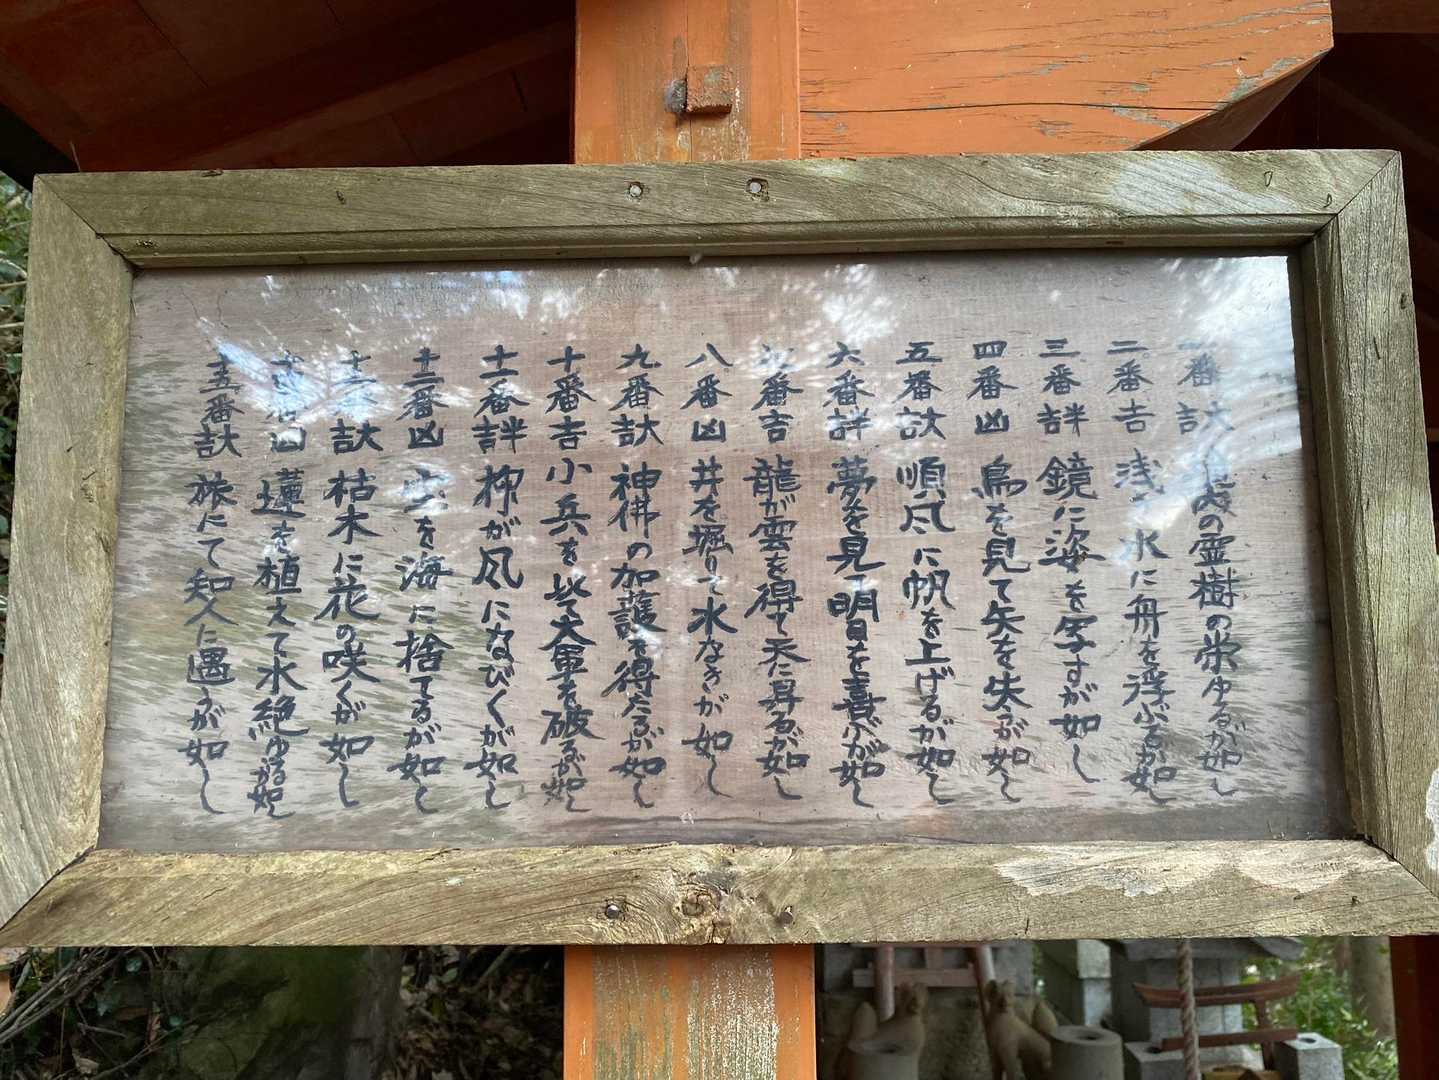 一番大吉 の霊樹の栄ゆるが如し
二番吉 浅き水に舟を浮ぶるが如し
三番半吉 鏡に姿を写すが如し
四番凶 鳥を見て矢を失うが如し
五番大吉 順風に帆を上げるが如し
六番半吉 夢を見て明日を喜ぶが如し
七番吉 龍が雲を得て天に昇るが如し
八番凶 井を堀りて水なきが如し
九番大吉 神佛の加護を得たるが如し
十番吉 小兵を以て大軍を破るが如し
十一番半吉 柳が風になびくが如し
十二番凶 宝を海に捨てるが如し
十三番大吉 枯木に花の咲くが如し
十四番凶 蓮を植えて水絶ゆるが如し
十五番大吉 旅にて知人に遇うが如し